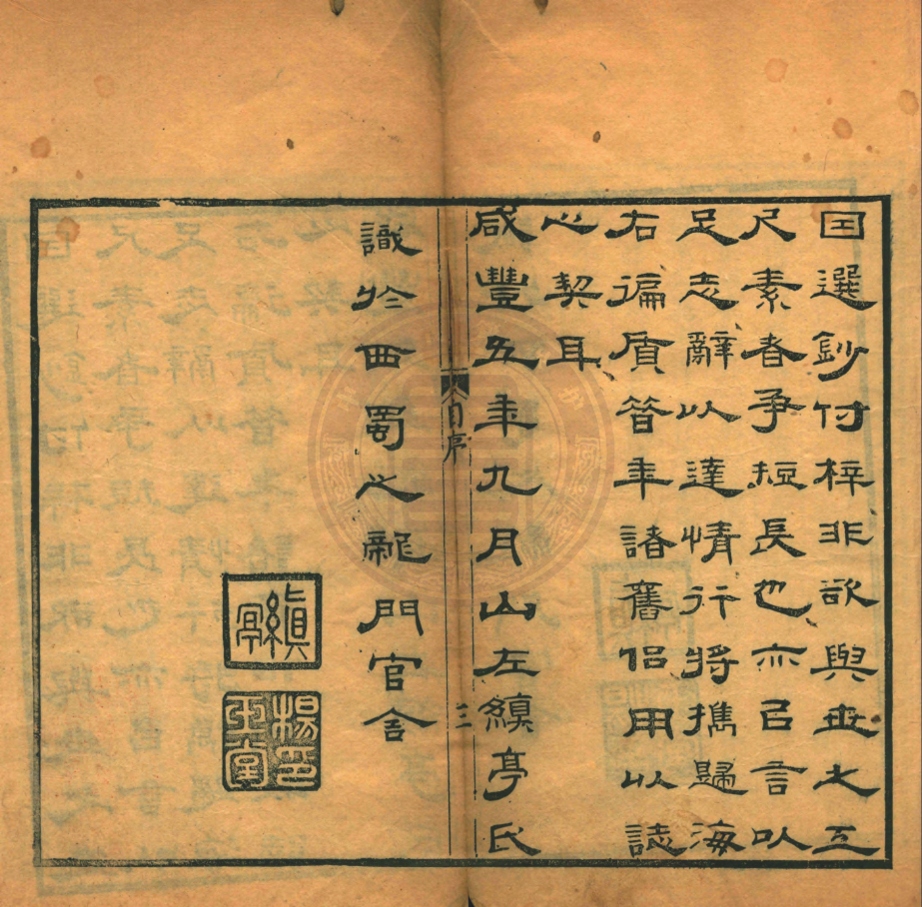 囙選鈔付梓非欲與世之工
尺素者爭短長也亦曰言以
足志辭以達情行將攜歸海
右徧質昔年諸舊侶用以誌
心契耳
咸豐五年九月山左縝亭氏
自序
三
識於西蜀之龍門官舍
縝亭
楊印玉堂